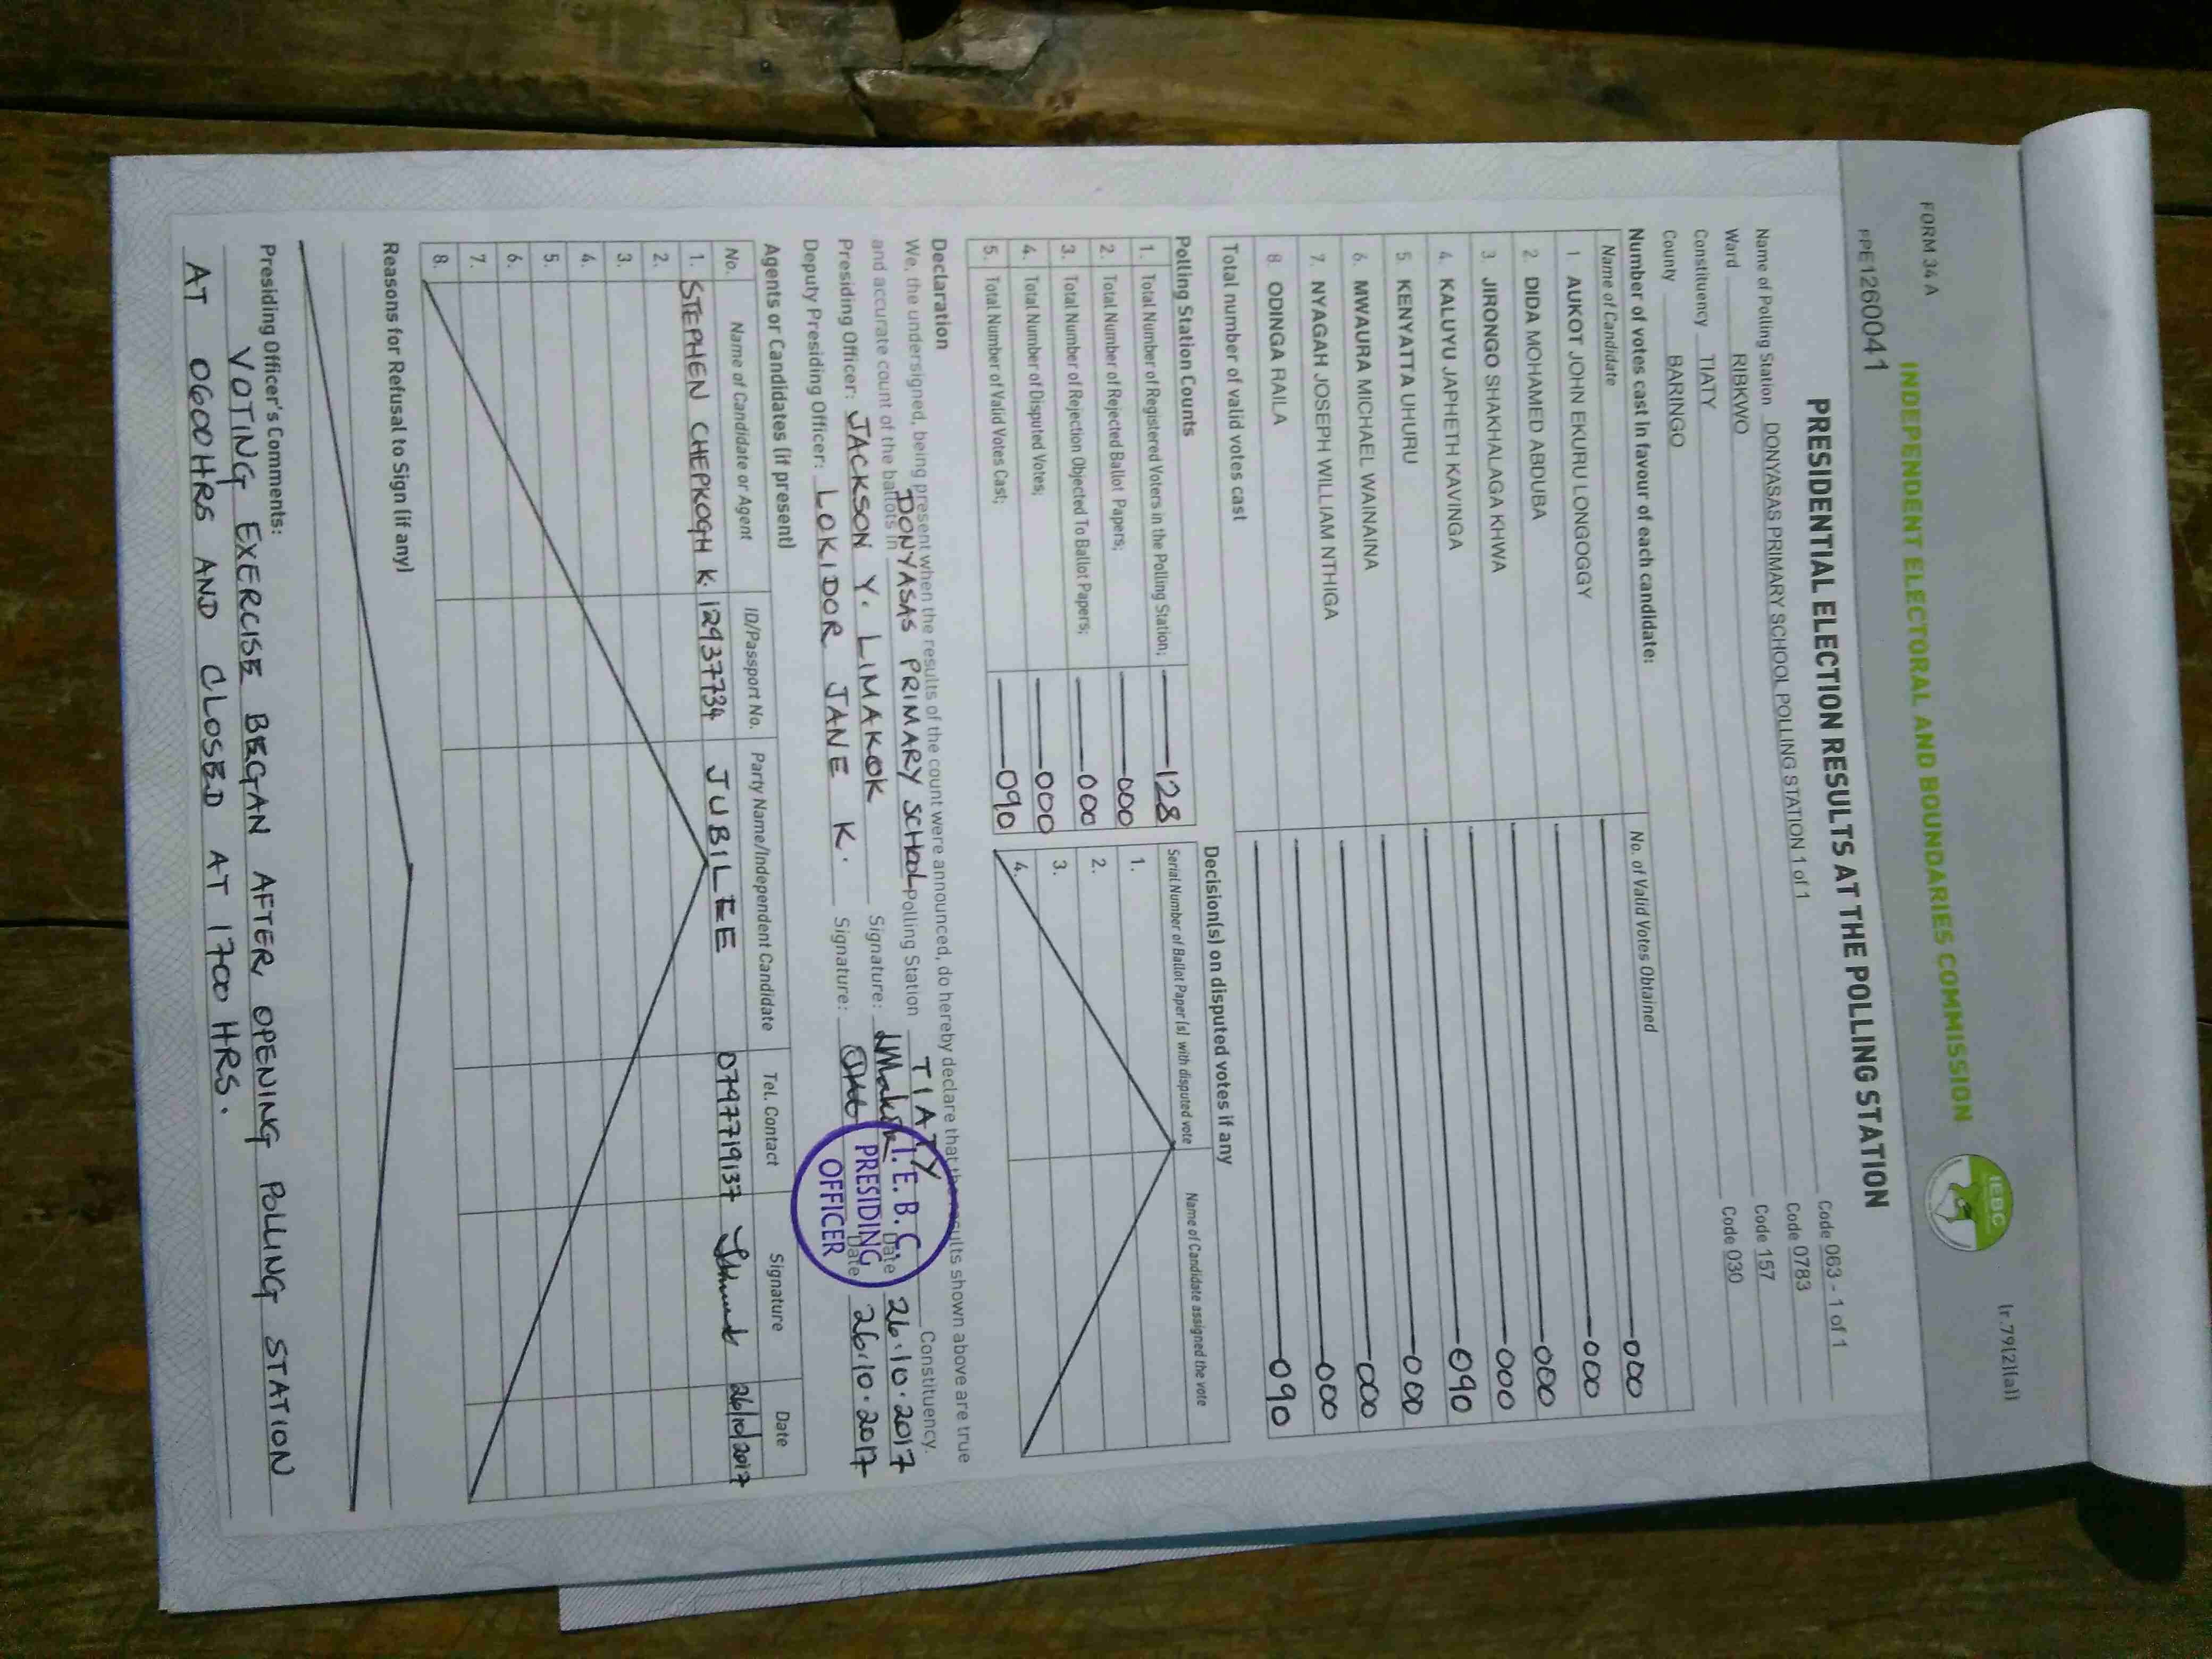 FORM 34 A
Ir.79(2)(a)
INDEPENDENT ELECTORAL AND BOUNDARIES COMMISSION
IEBC
PPE1260041
PRESIDENTIAL ELECTION RESULTS AT THE POLLING STATION
Name of Polling Station DONYASAS PRIMARY SCHOOL POLLING STATION 1 of 1 Code 063 - 1 of 1
Ward RIBKWO Code 0783
Constituency TIATY Code 157
County BARINGO Code 030
Number of votes cast in favour of each candidate:
Name of Candidate No. of Valid Votes Obtained
1 AUKOT JOHN EKURU LONGOGGY 000
2 DIDA MOHAMED ABDUBA 000
3 JIRONGO SHAKHALAGA KHWA 000
4 KALUYU JAPHETH KAVINGA 000
5 KENYATTA UHURU 090
6 MWAURA MICHAEL WAINAINA 000
7. NYAGAH JOSEPH WILLIAM NTHIGA 000
8 ODINGA RAILA 000
Total number of valid votes cast 090
Polling Station Counts
1. Total Number of Registered Voters in the Polling Station; 128
2. Total Number of Rejected Ballot Papers; 000
3. Total Number of Rejection Objected To Ballot Papers; 000
4. Total Number of Disputed Votes; 000
5. Total Number of Valid Votes Cast; 090
Decision(s) on disputed votes if any
Serial Number of Ballot Paper (s) with disputed vote Name of Candidate assigned the vote
1.
2.
3.
4.
Declaration
We, the undersigned, being present when the results of the count were announced, do hereby declare that the results shown above are true
and accurate count of the ballots in DONYASAS PRIMARY SCHOOL Polling Station TIATY Constituency.
Presiding Officer: JACKSON Y. LIMAKOK Signature: Date 26.10.2017
Deputy Presiding Officer: LOKIDOR JANE K. Signature: Date 26.10.2017
I.E.B.C.
PRESIDING
OFFICER
Agents or Candidates (if present)
No. Name of Candidate or Agent ID/Passport No. Party Name/Independent Candidate Tel. Contact Signature Date
1. STEPHEN CHEPKOGH K. 12937734 JUBILEE 0797719137 26/10/2017
2.
3.
4.
5.
6.
7.
8.
Reasons for Refusal to Sign (if any)
Presiding Officer's Comments:
VOTING EXERCISE BEGAN AFTER OPENING POLLING STATION
AT 0600HRS AND CLOSED AT 1700 HRS.